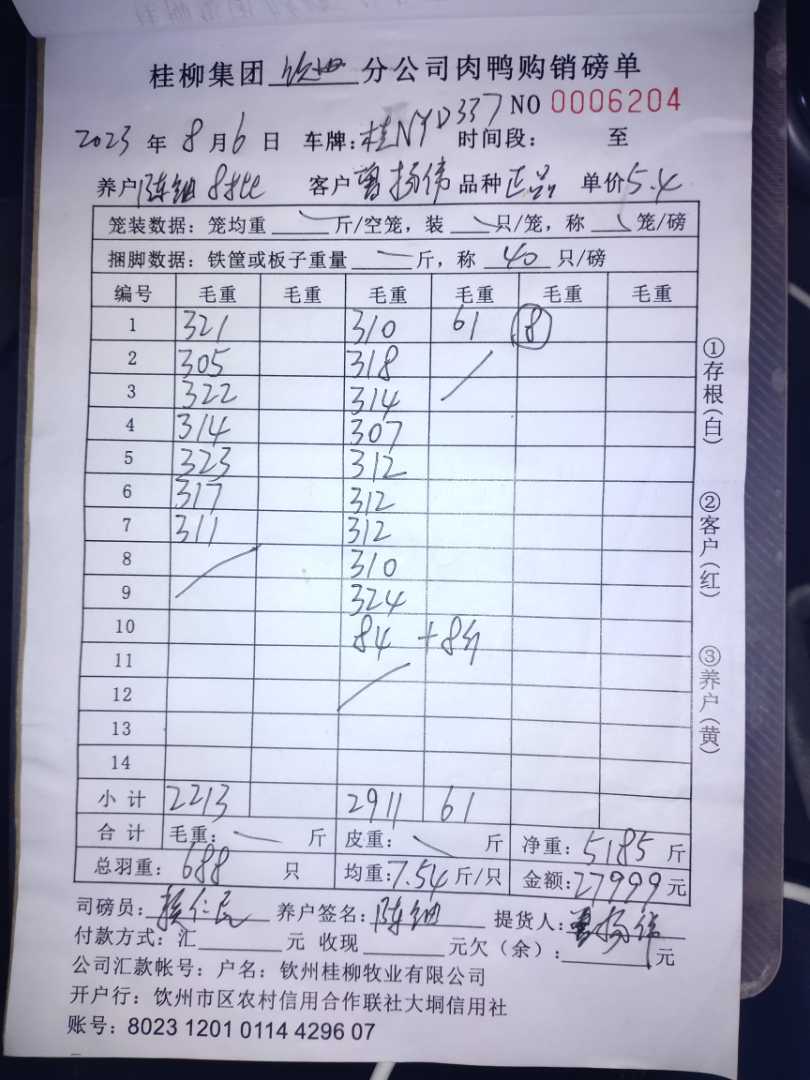 桂柳集团 钦州 分公司肉鸭购销磅单
NO 0006204
2023 年 8 月 6 日 车牌: 桂NYD337 时间段: 至
养户 陈细 8批 客户 曾扬伟 品种 正品 单价 5.4
笼装数据: 笼均重 斤/空笼, 装 只/笼, 称 笼/磅
捆脚数据: 铁筐或板子重量 一 斤, 称 40 只/磅
编号 毛重 毛重 毛重 毛重 毛重 毛重
1 321 310 61 8
2 305 318
3 322 314
4 314 307
5 323 312
6 317 312
7 311 312
8 310
9 324
10 84 +8
11
12
13
14
小 计 2213 2911 61
合 计 毛重: 斤 皮重: 斤 净重: 5185 斤
总羽重: 688 只 均重: 7.54 斤/只 金额: 27999 元
司磅员: 仁民 养户签名: 陈细 提货人: 曾扬伟
付款方式: 汇 元 收现 元欠(余): 元
公司汇款帐号: 户名: 钦州桂柳牧业有限公司
开户行: 钦州市区农村信用合作联社大垌信用社
账号: 8023 1201 0114 4296 07
①存根(白)
②客户(红)
③养户(黄)